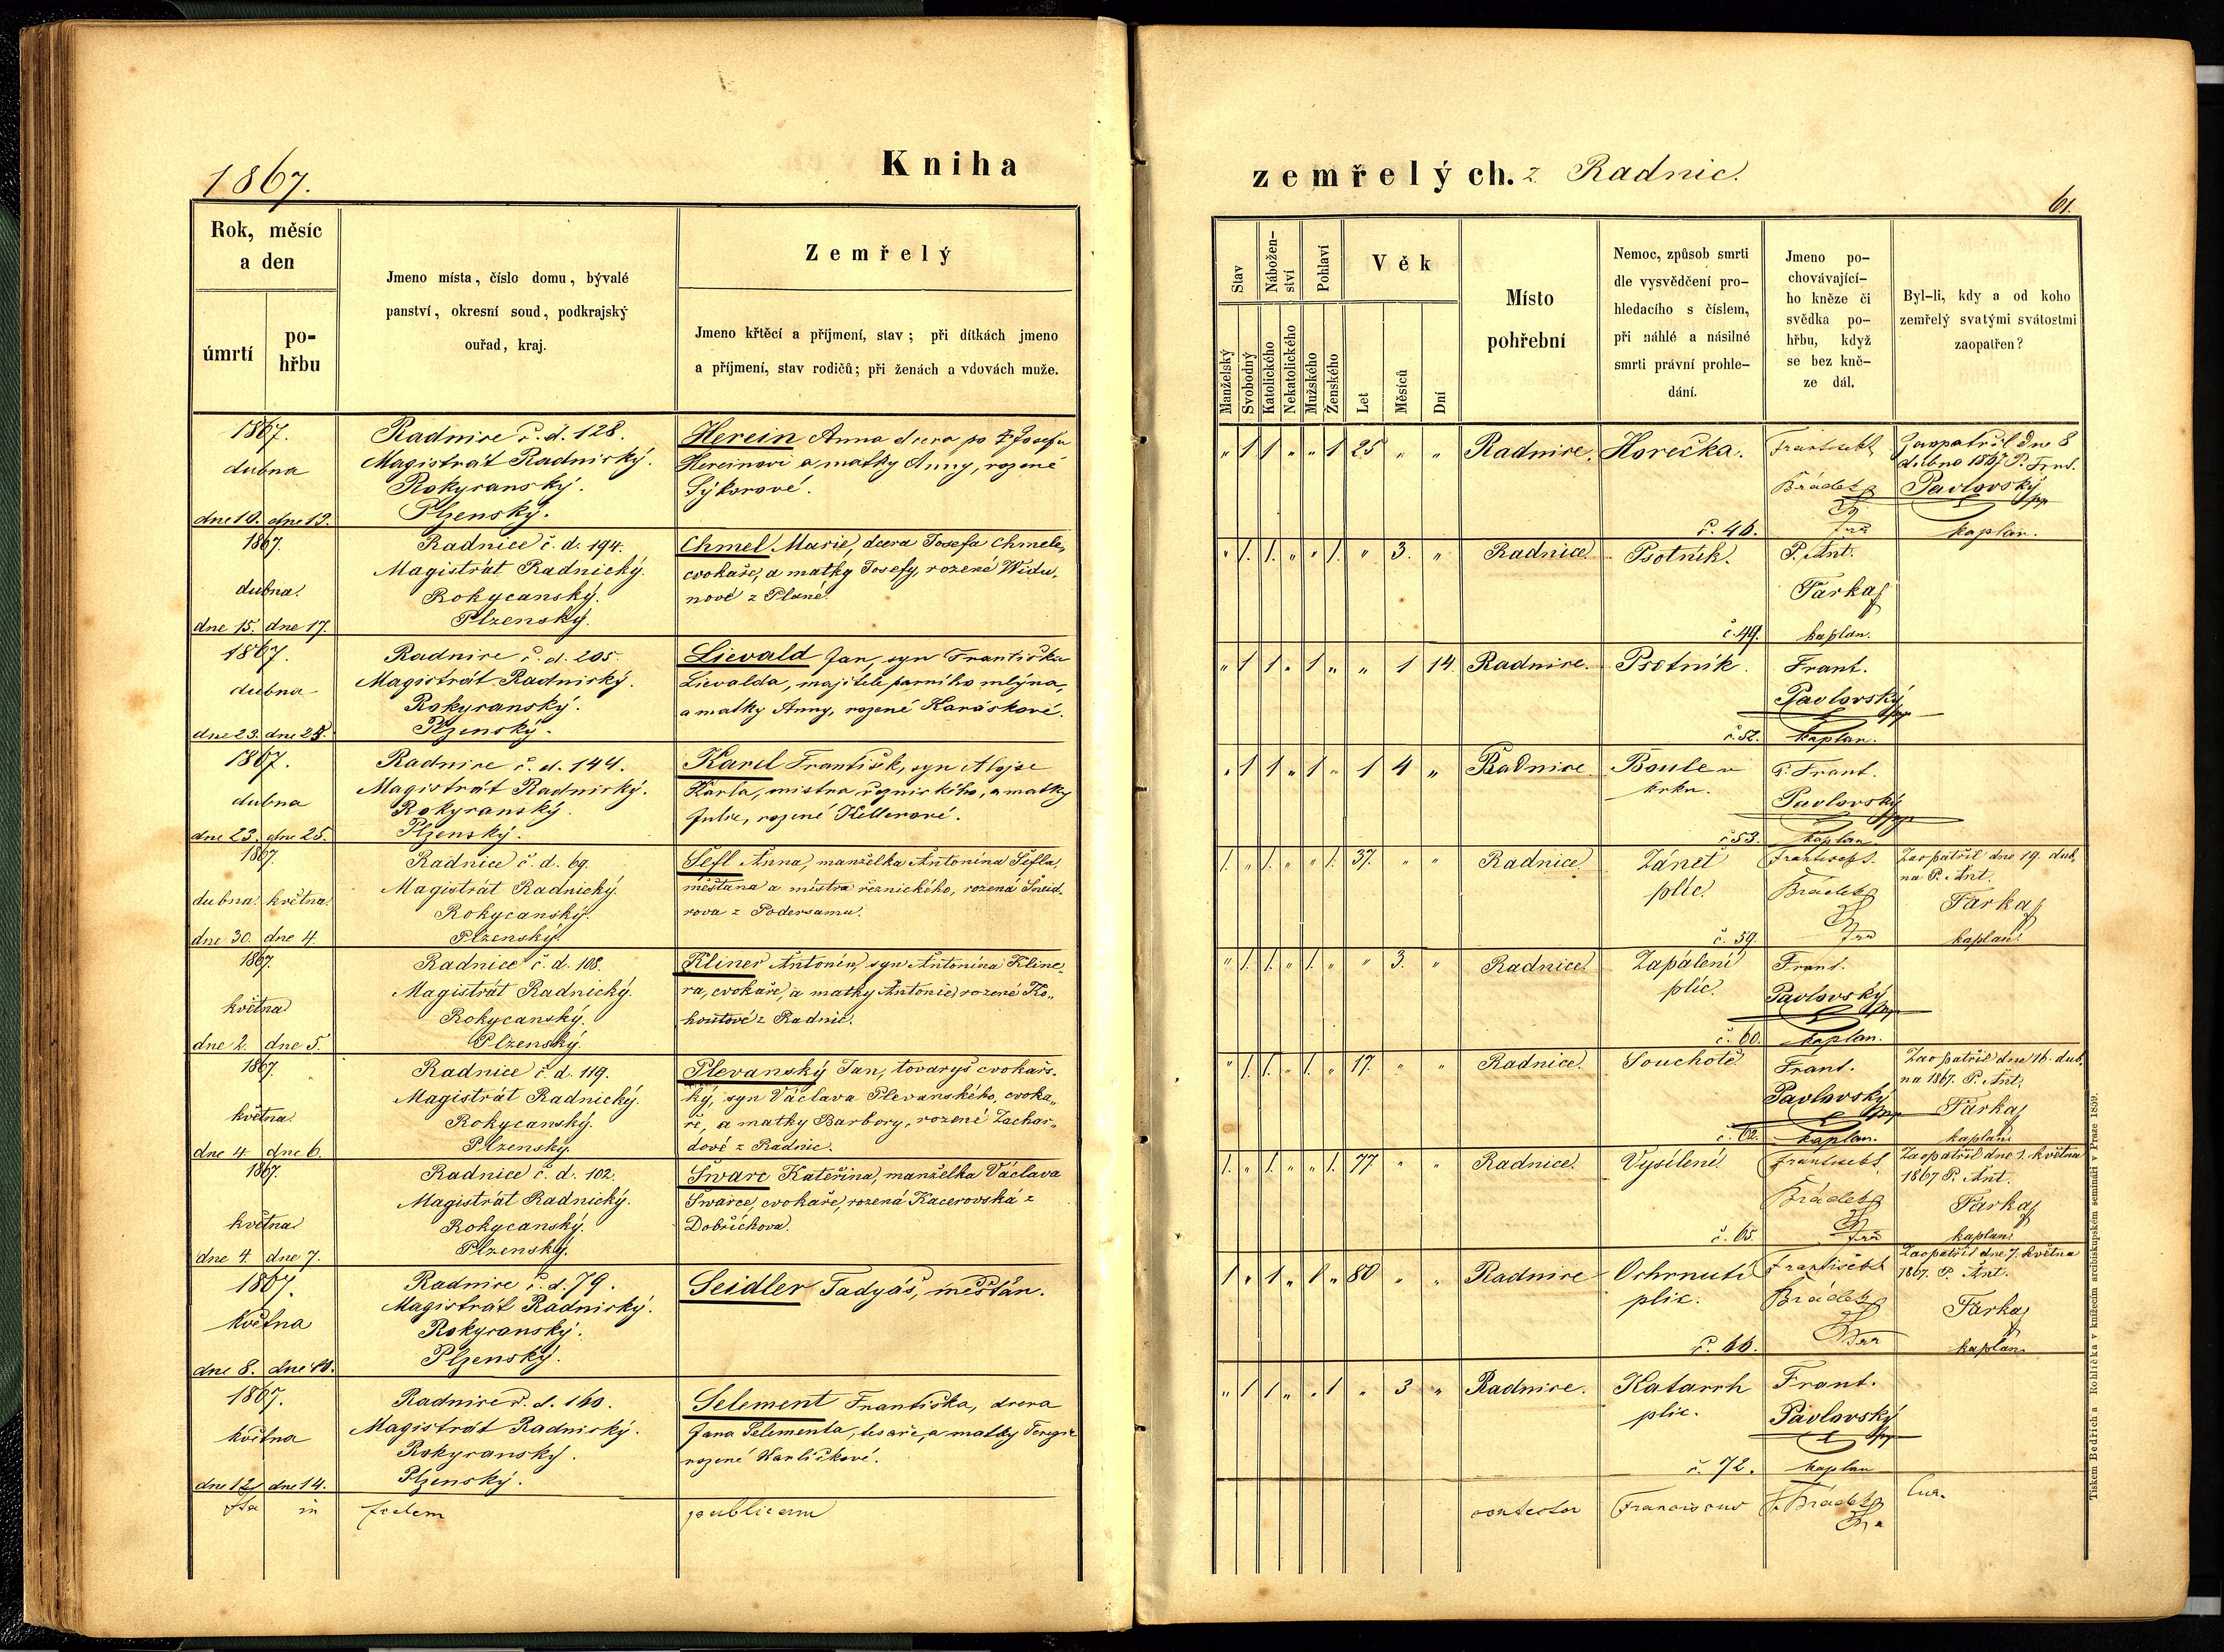 1867.
Kniha
zemřelých. z Radnic.
61.
Rok, měsíc
a den
úmrtí
po-
hřbu
Jmeno místa, číslo domu, bývalé
panství, okresní soud, podkrajský
ouřad, kraj.
Zemřelý
Jmeno křtěcí a příjmení, stav; při dítkách jmeno
a příjmení, stav rodičů; při ženách a vdovách muže.
Stav
Nábožen-
ství
Pohlaví
Věk
Manželský
Svobodný
Katolického
Nekatolického
Mužského
Ženského
Let
Měsíců
Dní
Místo
pohřební
Nemoc, způsob smrti
dle vysvědčení pro-
hledacího s číslem,
při náhlé a násilné
smrti právní prohle-
dání.
Jmeno po-
chovávající-
ho kněze či
svědka po-
hřbu, když
se bez kně-
ze dál.
Byl-li, kdy a od koho
zemřelý svatými svátostmi
zaopatřen?
1867.
dubna
dne 10. dne 12.
Radnice č. d. 128.
Magistrát Radnický.
Rokycanský.
Plzenský.
Herein Anna dcera po Josefu
Hereinovi a matky Anny, rozené
Sýkorové.
" 1 1 " " 1 25 " "
Radnice.
Horečka.
č. 46.
Zaopatřil dne 8
dubna 1867 P. Frant.
Pavlovský
kaplan.
1867.
dubna.
dne 15. dne 17.
Radnice č. d. 194.
Magistrát Radnický.
Rokycanský.
Plzenský.
Chmel Marie, dcera Josefa Chmele,
cvokaře, a matky Josefy, rozené Widu-
nové z Plané.
" 1. 1. " " 1. " 3. "
Radnice.
Psotník.
č. 49.
P. Ant.
Farka
kaplan.
1867.
dubna
dne 23. dne 25.
Radnice č. d. 205.
Magistrát Radnický.
Rokycanský.
Plzenský.
Lievald Jan, syn Františka
Lievalda, majitele parního mlýna,
a matky Anny, rozené Karáskové.
" 1 1 " 1 " " 1 14.
Radnice.
Psotník.
č. 52.
Frant.
Pavlovský
kaplan.
1867.
dubna
dne 23. dne 25.
Radnice č. d. 144.
Magistrát Radnický.
Rokycanský.
Plzenský.
Karel František, syn Alojse
Karla, mistra řeznického, a matky
Julie, rozené Kellerové.
" 1 1 " 1 " 1 4 "
Radnice
Boule v
krku.
č. 53.
P. Frant.
Pavlovský
kaplan.
1867.
dubna. května.
dne 30. dne 4.
Radnice č. d. 69.
Magistrát Radnický.
Rokycanský.
Plzenský.
Šefl Anna, manželka Antonína Šefla,
měšťana a mistra řeznického, rozená Šneid-
rova z Podersamu.
1. " 1. " " 1. 37. " "
Radnice
Zánět
plíc.
č. 59.
Zaopatřil dne 19. dub-
na P. Ant.
Farka
kaplan.
1867.
května
dne 2. dne 5.
Radnice č. d. 108.
Magistrát Radnický.
Rokycanský.
Plzenský.
Kliner Antonín, syn Antonína Kline-
ra, cvokaře, a matky Antonie, rozené Ko-
houtové z Radnic.
" 1. 1. " 1. " " 3. "
Radnice.
Zapálení
plic.
č. 60.
Frant.
Pavlovský
kaplan.
1867.
května.
dne 4. dne 6.
Radnice č. d. 119.
Magistrát Radnický.
Rokycanský.
Plzenský.
Plevanský Jan, tovaryš cvokařs-
ký, syn Václava Plevanského, cvoka-
ře, a matky Barbory, rozené Zachar-
dové z Radnic.
" 1. 1. " 1. " 17. " "
Radnice.
Souchotě.
č. 62.
Frant.
Pavlovský
kaplan.
Zaopatřil dne 16. dub-
na 1867. P. Ant.
Farka
kaplan.
1867.
května
dne 4. dne 7.
Radnice č. d. 102.
Magistrát Radnický.
Rokycanský.
Plzenský.
Švarc Kateřina, manželka Václava
Švarce, cvokaře, rozená Kacerovská z
Dobříchova.
1. " 1. " " 1. 77. " "
Radnice.
Vysílení.
č. 65.
Zaopatřil dne 1. května
1867 P. Ant.
Farka
kaplan.
1867.
května
dne 8. dne 10.
Radnice č. d. 79.
Magistrát Radnický.
Rokycanský.
Plzenský.
Seidler Tadyáš, měšťan.
1 " 1 " 1 " 80 " "
Radnice
Ochrnutí
plic.
č. 66.
Zaopatřil dne 7. května
1867. P. Ant.
Farka
kaplan.
1867.
května
dne 12. dne 14.
Radnice č. d. 160.
Magistrát Radnický.
Rokycanský.
Plzenský.
Selement Františka, dcera
Jana Selementa, tesaře, a matky Terezie
rozené Karlíčkové.
" 1 1 " " 1 " 3 "
Radnice.
Katarrh
plic.
č. 72.
Frant.
Pavlovský
kaplan
Ita in fidem publicam
contestor Franciscus
Tiskem Bedřicha Rohlíčka v knížecím arcibiskupském semináři v Praze 1859.